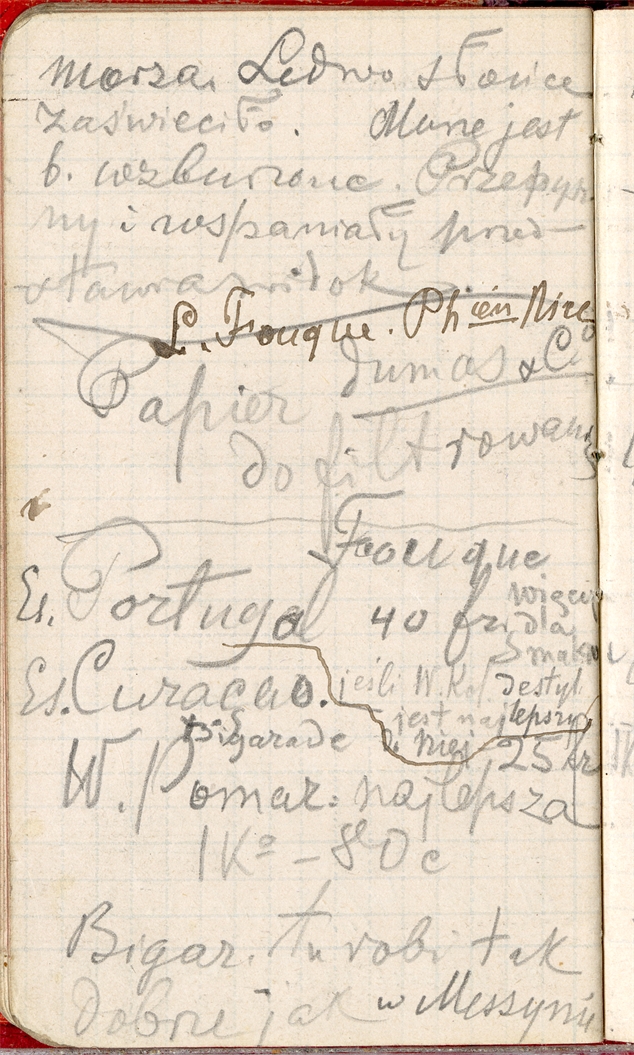 morza. Ledwo słońce
zaświeciło. Morze jest
b. wzburzone. Przepysz
ny i wspaniały przed-
stawia widok
L. Fouque. Phcién Nice
Papier Dumas & Co
do filtrowania
Fouque
Es. Portugal 40 fr. więcej
dla
smaku
Es. Curaçao. jeśli W. Kof destyl.
jest najlepszy
Bigarade z niej 25 kr
W. Pomar. najlepsza
1 Ko – 80 c
Bigar. tu robi tak
dobrze jak w Messynie